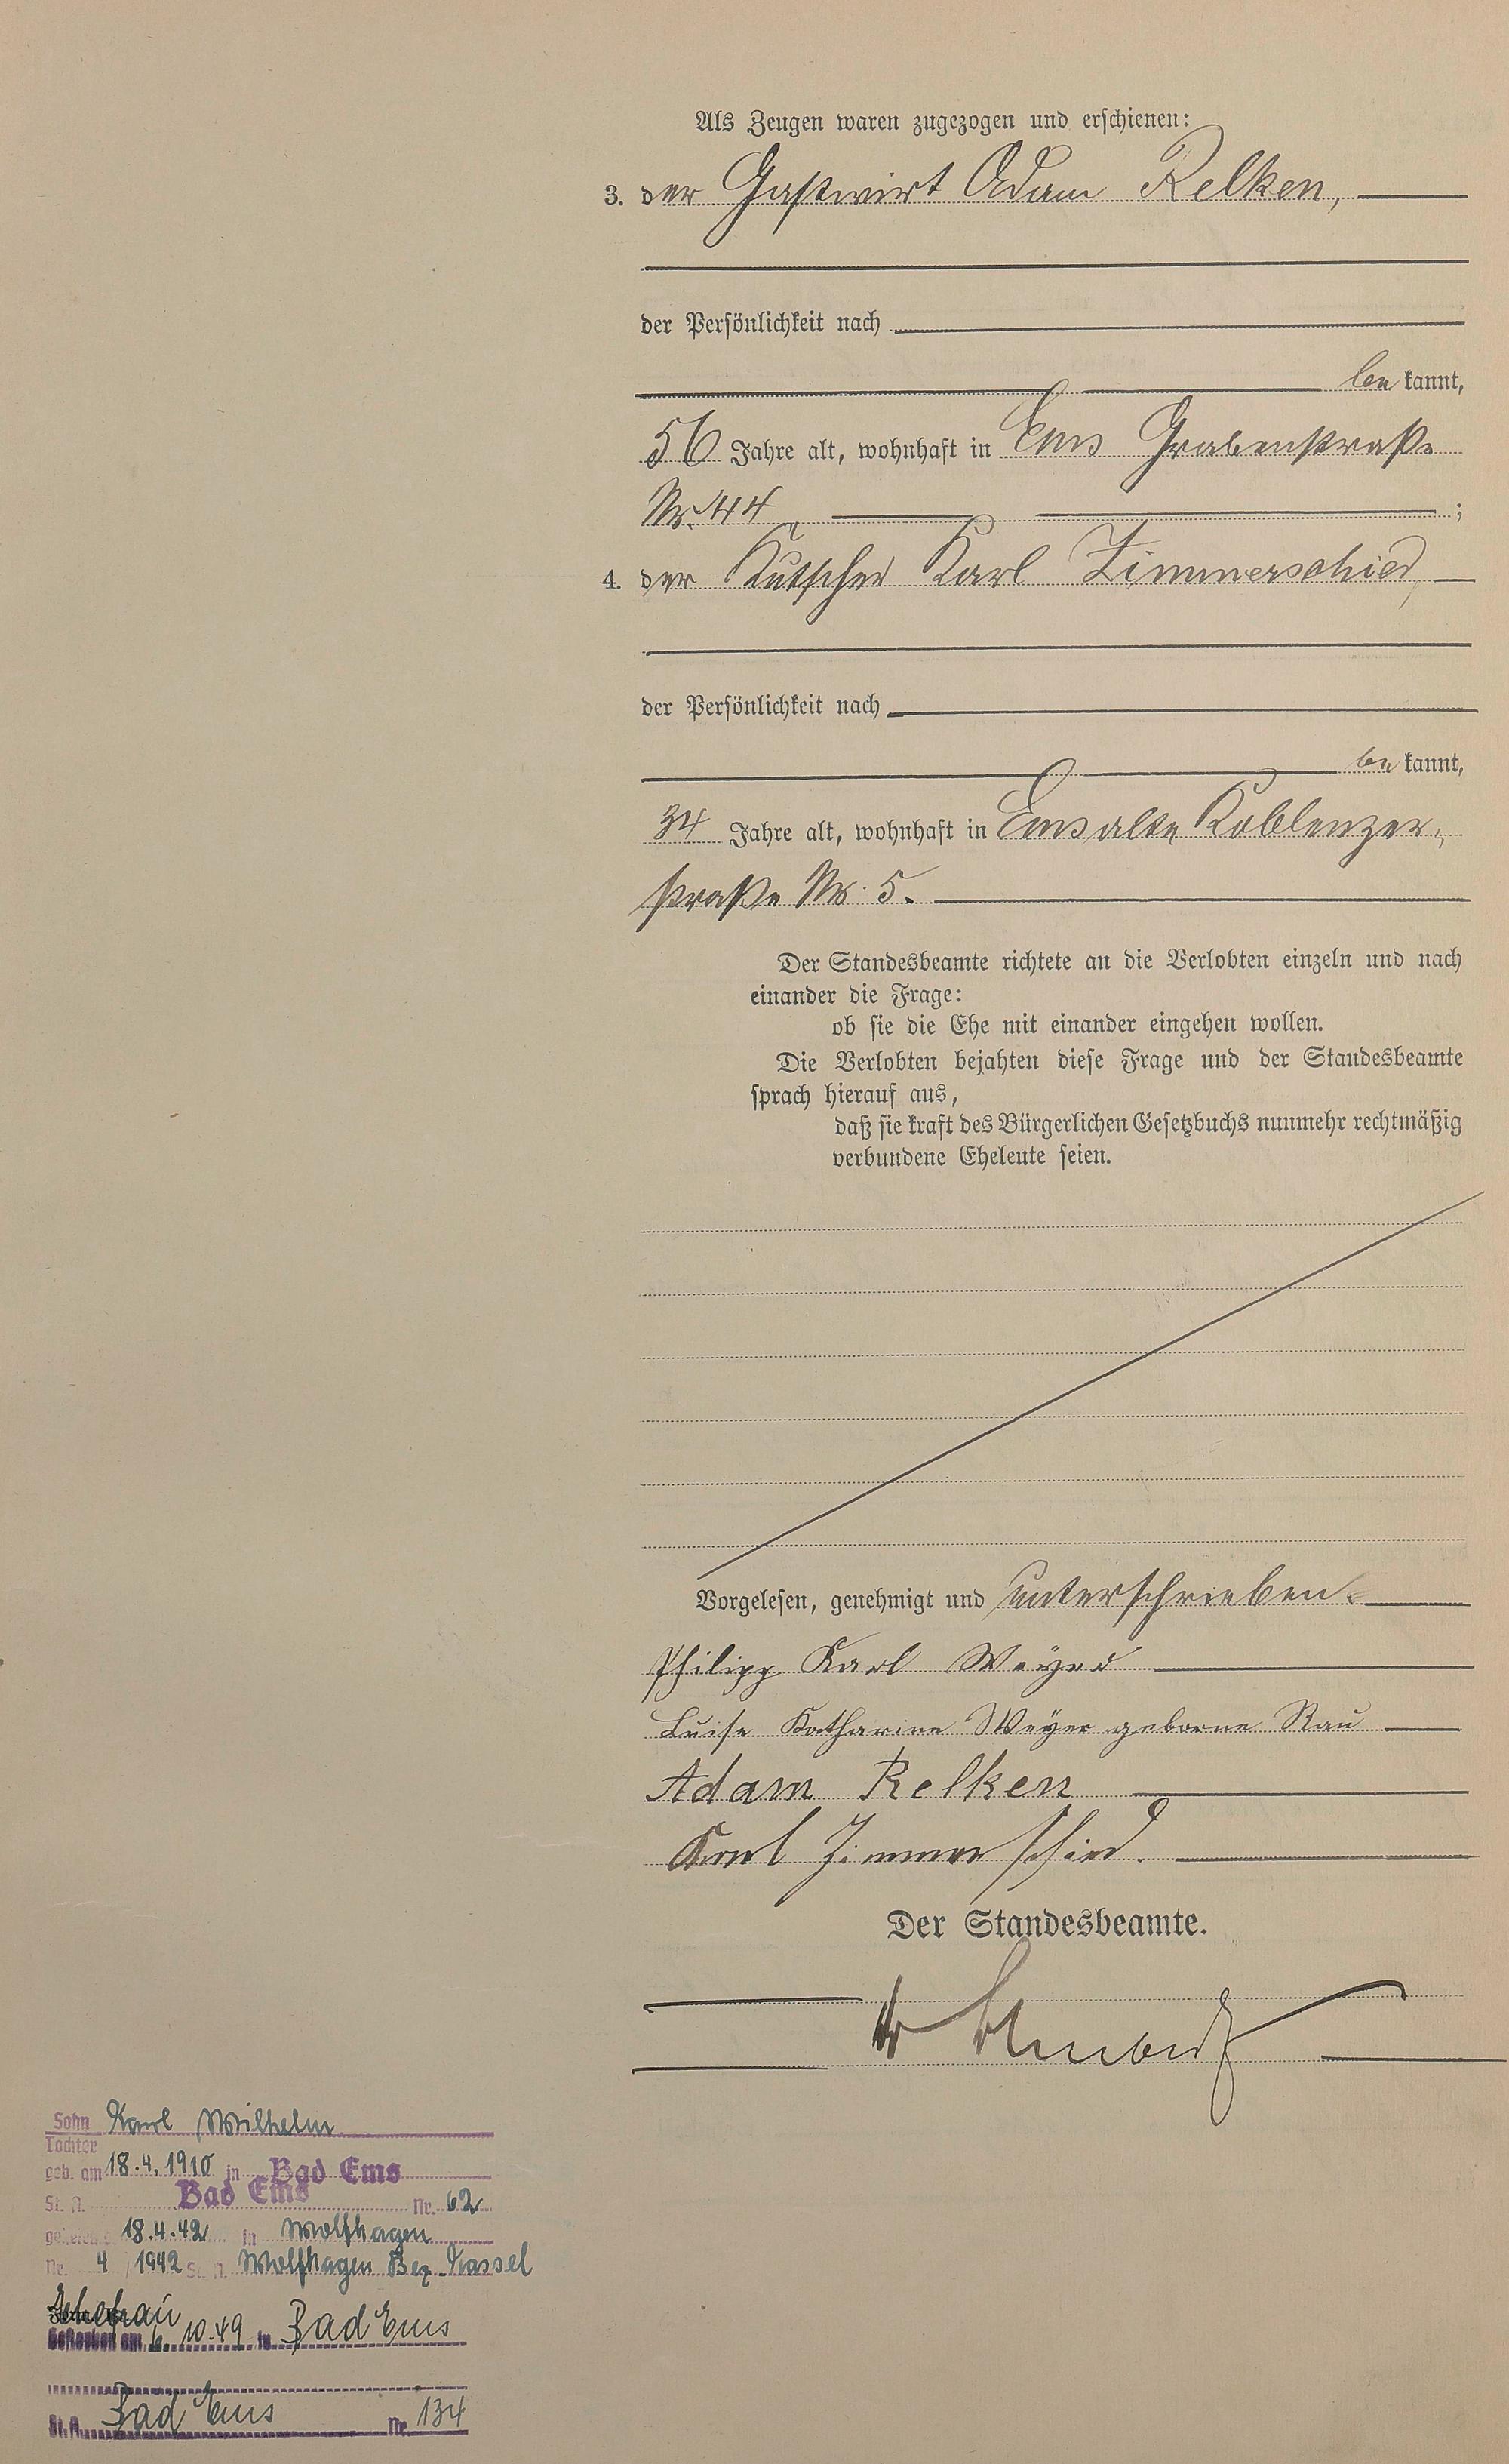 Als Zeugen waren zugezogen und erschienen:
3. der Gastwirt Adam Relken,
der Persönlichkeit nach
be kannt,
56 Jahre alt, wohnhaft in Ems Grabenstraße
Nr. 44 ;
4. der Kutscher Karl Zimmerschied,
der Persönlichkeit nach
be kannt,
34 Jahre alt, wohnhaft in Ems alte Koblenzer-
straße Nr. 5.
Der Standesbeamte richtete an die Verlobten einzeln und nach
einander die Frage:
ob sie die Ehe mit einander eingehen wollen.
Die Verlobten bejahten diese Frage und der Standesbeamte
sprach hierauf aus,
daß sie kraft des Bürgerlichen Gesetzbuchs nunmehr rechtmäßig
verbundene Eheleute seien.
Vorgelesen, genehmigt und unterschrieben.
Philipp Karl Weyer
Luise Katharine Weyer geborne Rau
Adam Relken
Karl Zimmerschied.
Der Standesbeamte.
Sohn Karl Wilhelm
Tochter
geb. am 18.4.1910 in Bad Ems
St. A. Bad Ems Nr. 62
18.4.42 in Wolfhagen
Nr. 4 / 1942 St. A. Wolfhagen Bez. Kassel
Ehefrau
Gestorben am 6.10.49 in Bad Ems
St.A. Bad Ems Nr. 134